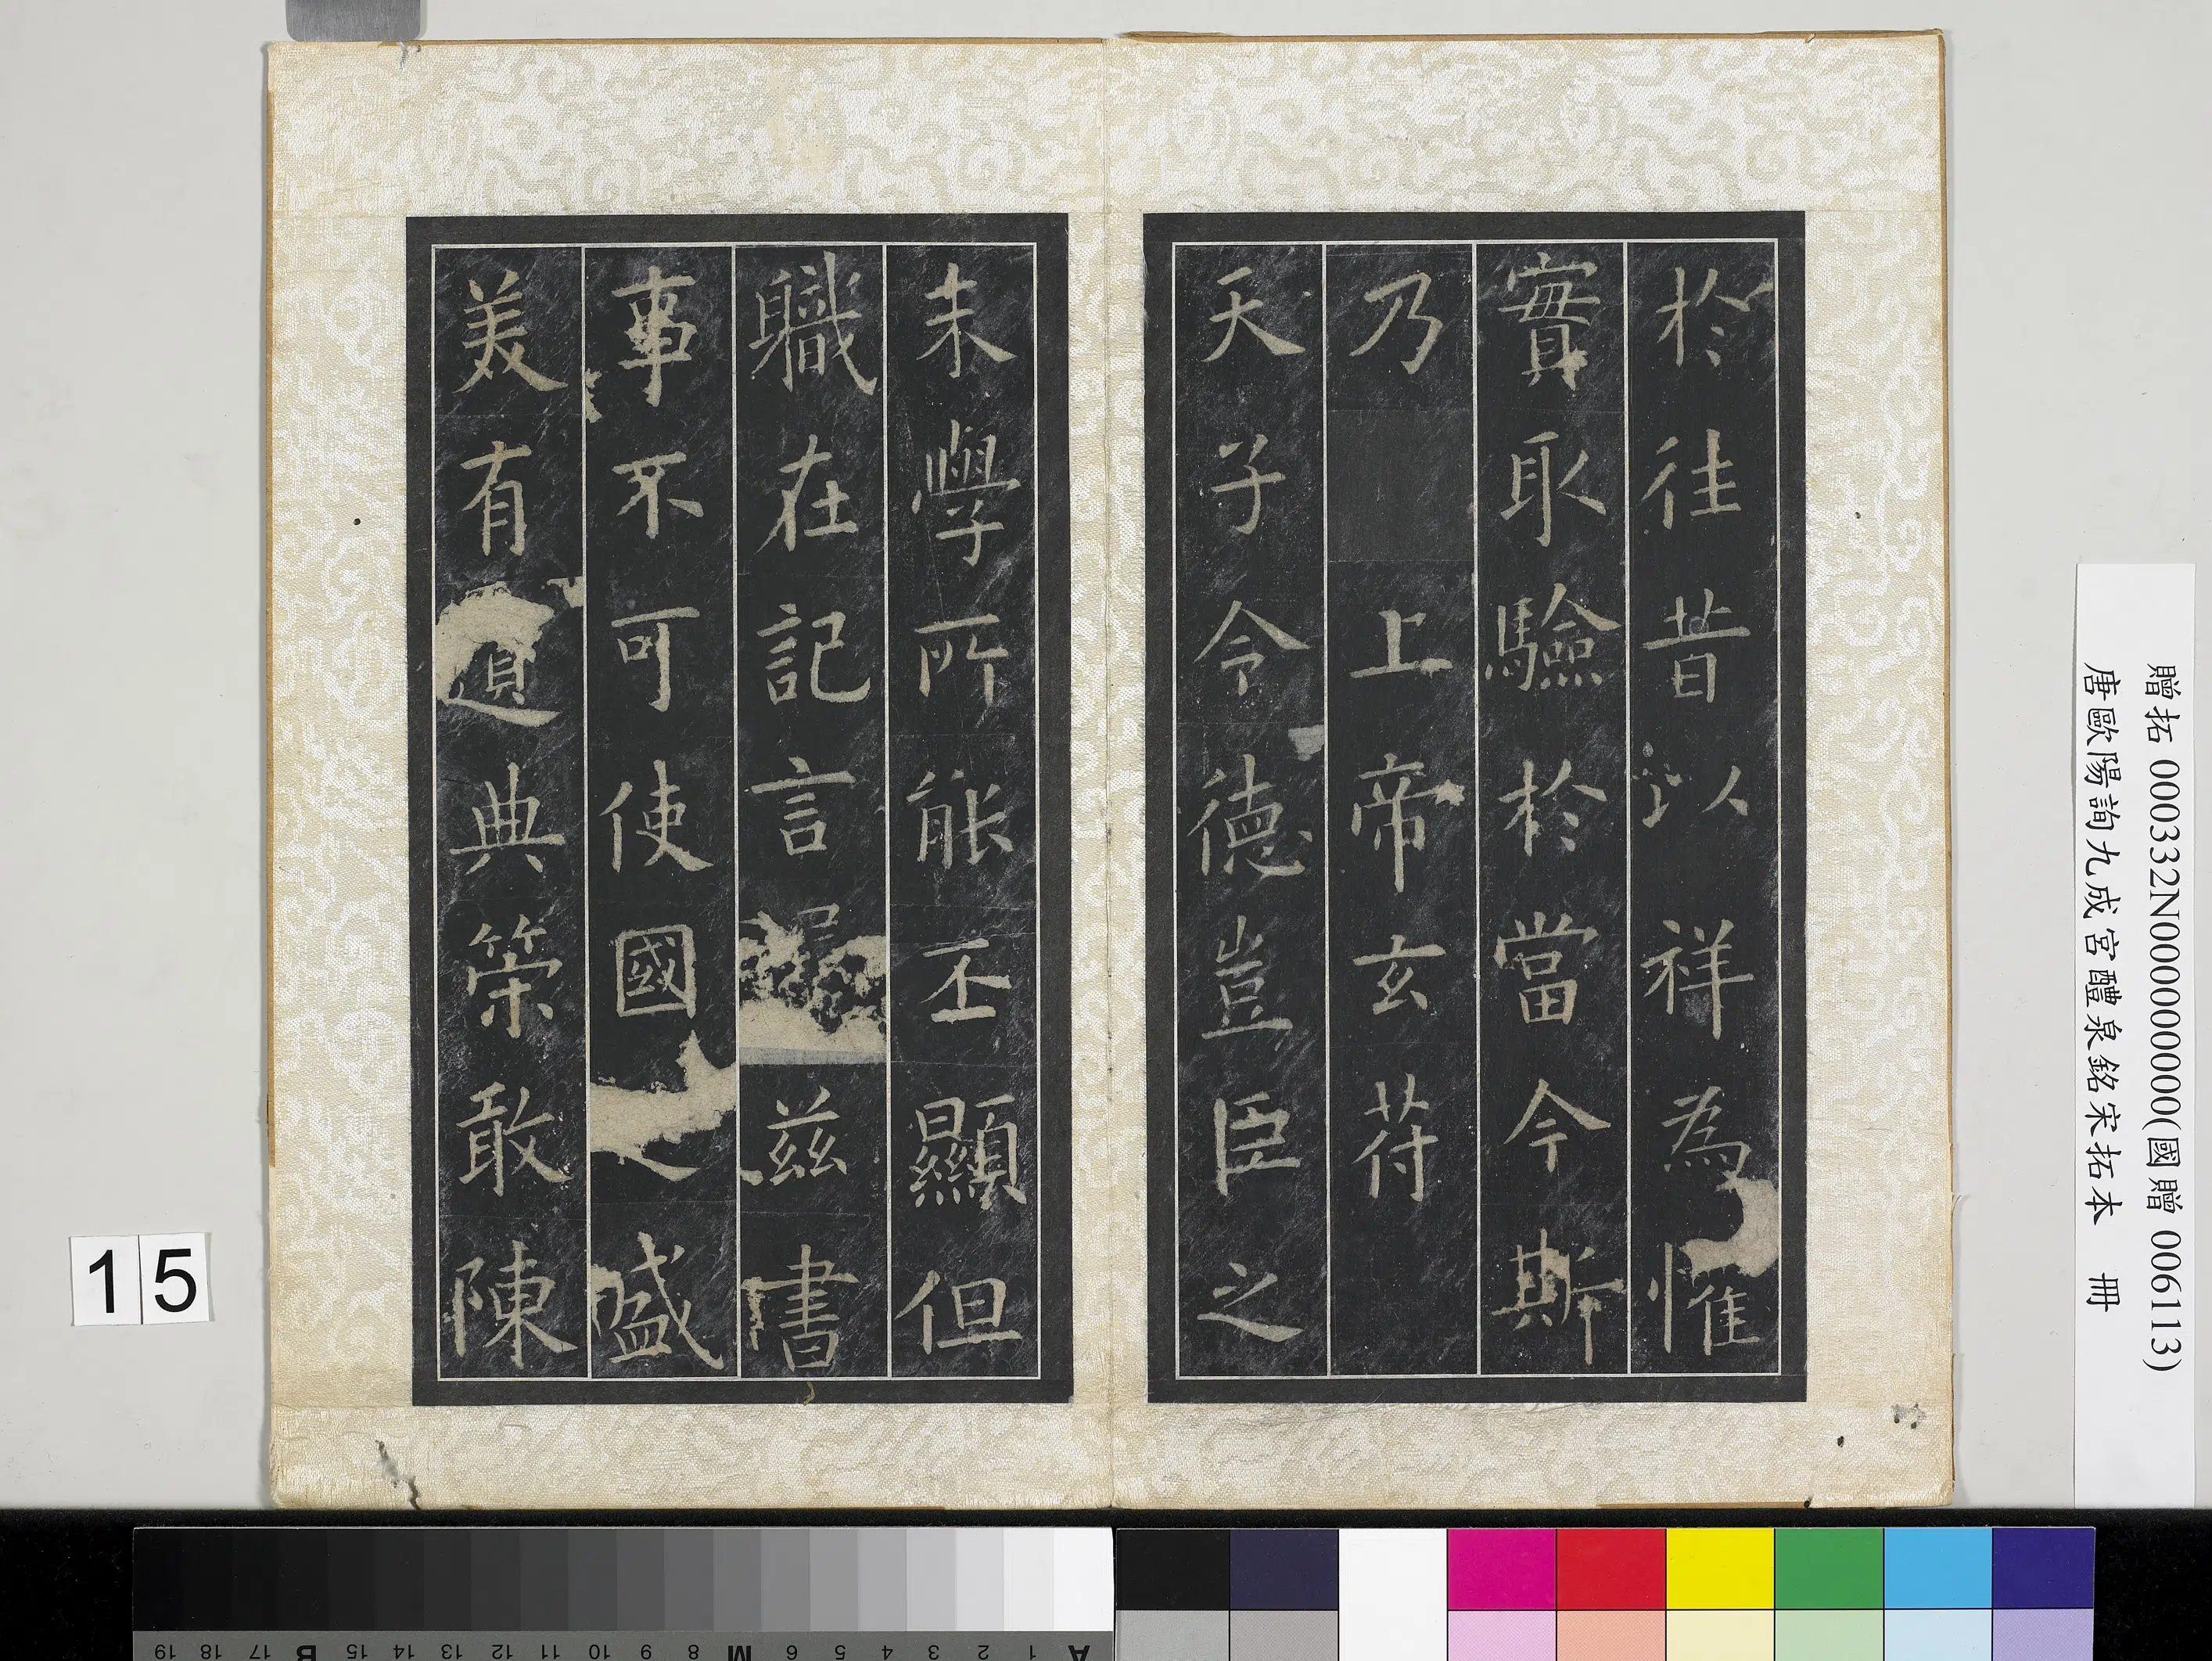 於往昔以祥為惟
實取驗於當今斯
乃上帝玄符
天子令德豈臣之
末學所能丕顯但
職在記言屬茲書
事不可使國之盛
美有遺典策敢陳
贈拓 000332N000000000(國贈 006113)
唐歐陽詢九成宮醴泉銘宋拓本 冊
15
A 1 2 3 4 5 6 M 8 9 10 11 12 13 14 15 B 17 18 19